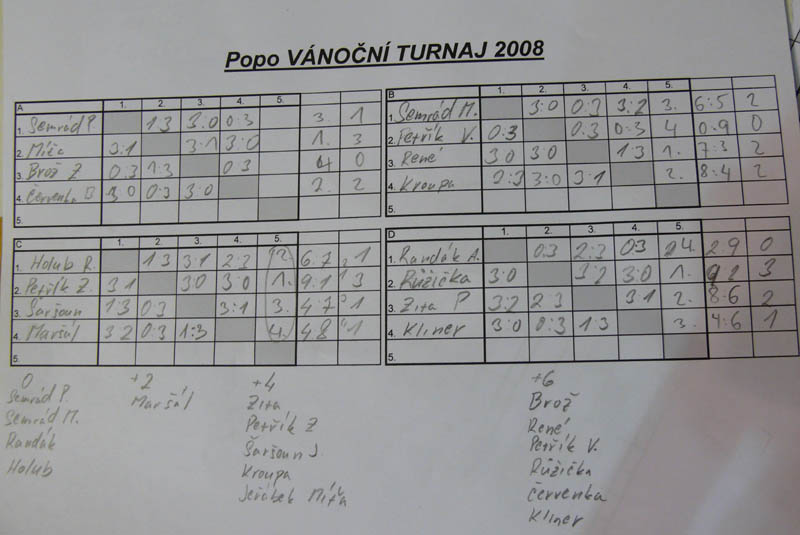 Popo VÁNOČNÍ TURNAJ 2008
A 1. 2. 3. 4. 5.
1. Semrád P. 1 3 3:0 0:3 3. 1
2. Míťa 3:1 3 1 3:0 1. 3
3. Brož Z 0:3 1:3 0:3 4 0
4. Červenka 3 0 0:3 3:0 2. 2
5.
B 1. 2. 3. 4. 5.
1. Semrád M. 3:0 0:3 3:2 3. 6:5 2
2. Petřík V. 0:3 0:3 0:3 4 0:9 0
3. René 3 0 3:0 1:3 1. 7:3 2
4. Kroupa 2:3 3:0 3:1 2. 8:4 2
5.
C 1. 2. 3. 4. 5.
1. Holub R. 1 3 3:1 2:3 2. 6:7 1
2. Petřík Z. 3 1 3:0 3:0 1. 9:1 3
3. Šaršoun 1:3 0:3 3:1 3. 4:7 1
4. Maršál 3:2 0:3 1:3 4. 4:8 1
5.
D 1. 2. 3. 4. 5.
1. Randák A. 0:3 2:3 0:3 4. 2:9 0
2. Růžička 3:0 3:2 3:0 1. 9:2 3
3. Zita P 3:2 2:3 3:1 2. 8:6 2
4. Kliner 3:0 0:3 1:3 3. 4:6 1
5.
0
Semrád P.
Semrád M.
Randák
Holub
+2
Maršál
+4
Zita
Petřík Z
Šaršoun J.
Kroupa
Jeřábek Míťa
+6
Brož
René
Petřík V.
Růžička
Červenka
Kliner